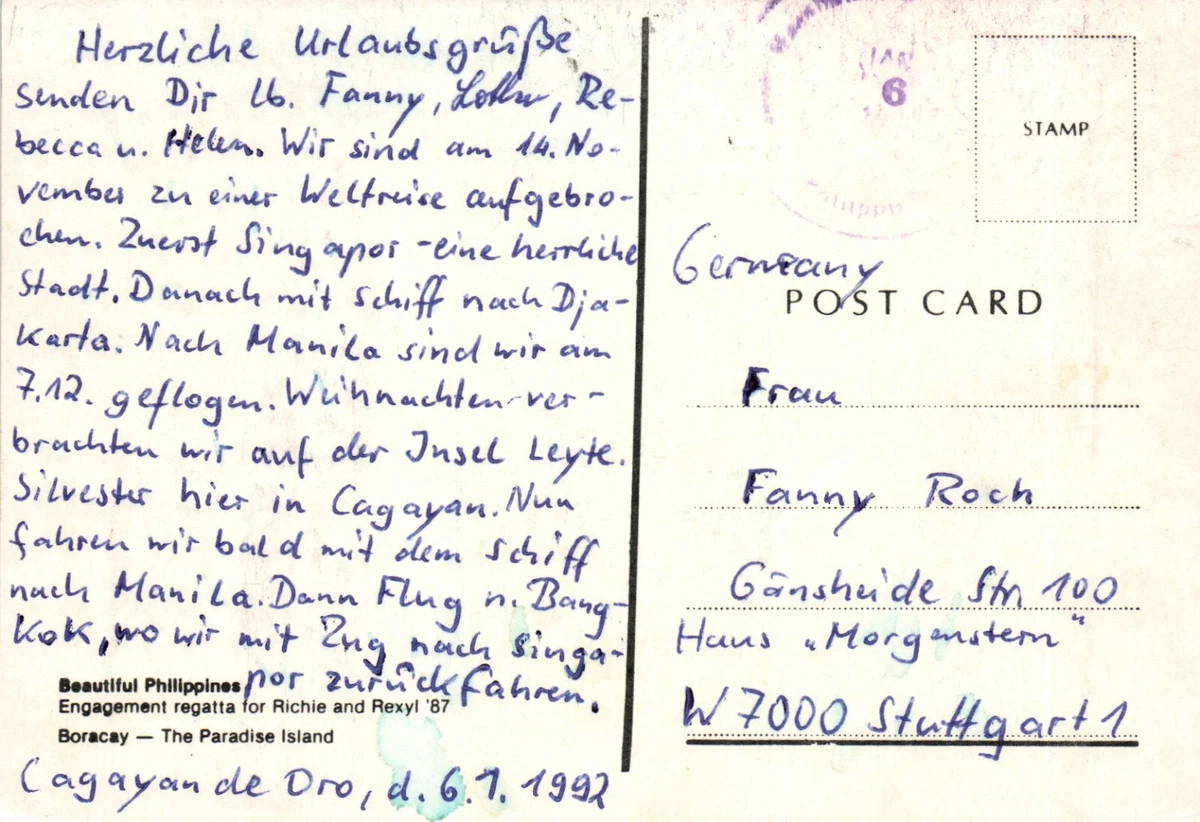 Herzliche Urlaubsgrüße
senden Dir lb. Fanny, Lothar, Re-
becca u. Helen. Wir sind am 14. No-
vember zu einer Weltreise aufgebro-
chen. Zuerst Singapor - eine herrliche
Stadt. Danach mit Schiff nach Dja-
karta. Nach Manila sind wir am
7.12. geflogen. Weihnachten ver-
brachten wir auf der Insel Leyte.
Silvester hier in Cagayan. Nun
fahren wir bald mit dem Schiff
nach Manila. Dann Flug n. Bang-
kok, wo wir mit Zug nach Singa-
por zurückfahren.
Beautiful Philippines
Engagement regatta for Richie and Rexyl '87
Boracay — The Paradise Island
Cagayan de Oro, d. 6.1.1992
JAN
6
STAMP
Germany
POST CARD
Frau
Fanny Roch
Gänsheide Str. 100
Haus „Morgenstern"
W 7000 Stuttgart 1